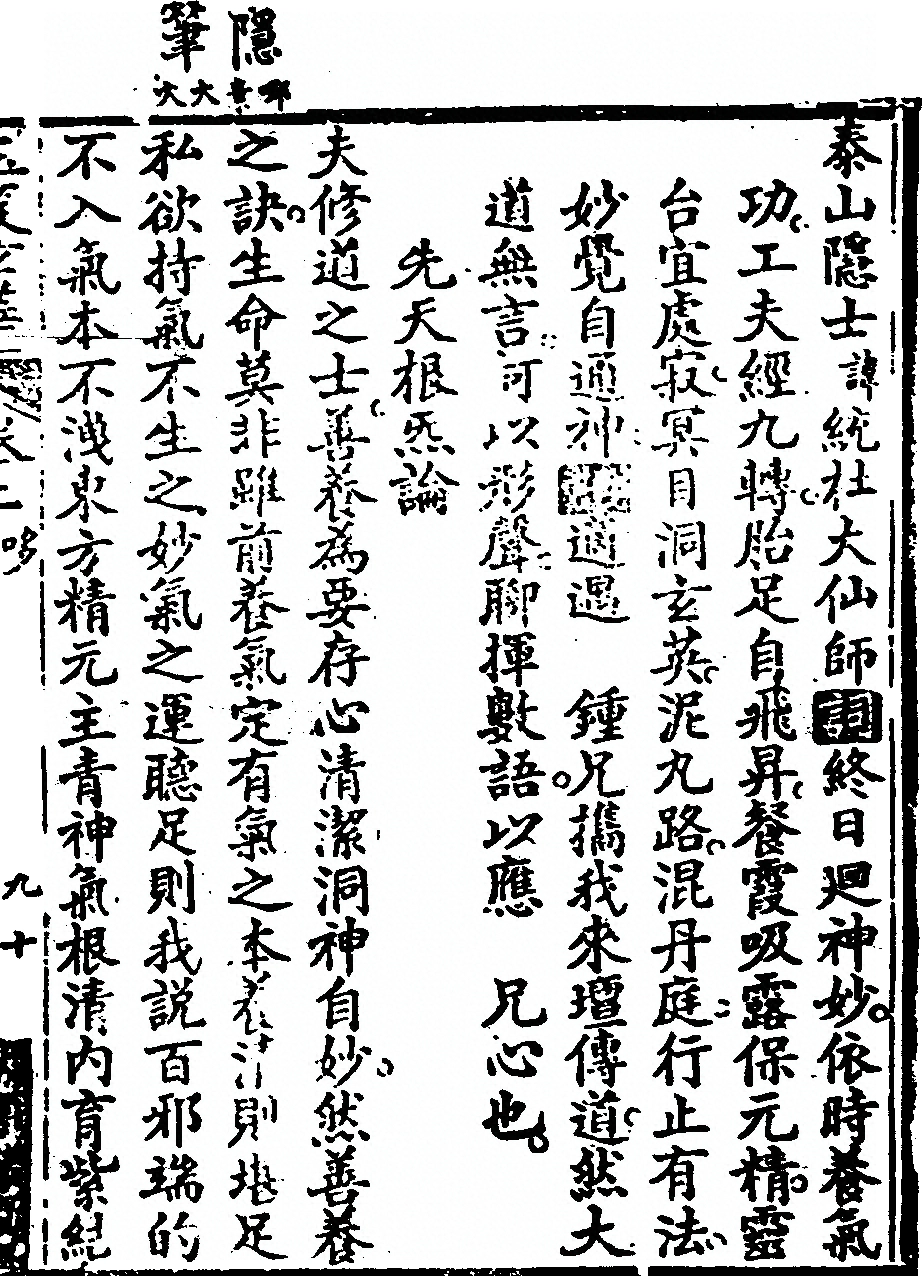 隱筆
大大
泰山隱士諱統杜大仙師 終日迴神妙依時養氣
功工夫經九轉胎足自飛昇餐霞吸露保元精靈
台宜處寂冥目洞玄英泥丸路混丹庭行止有法
妙覺自通神 適遇 鍾兄攜我來壇傳道然大
道無言可以形聲聊揮數語以應 兄心也
先天根炁論
夫修道之士善養為要存心清潔洞神自妙然善養
之訣生命莫非雖前養氣定有氣之本養 則堪足
私欲持氣不生之妙氣之運聽足則我説百邪端的
不入氣本不洩東方精元主青神氣根清内育紫純
九十